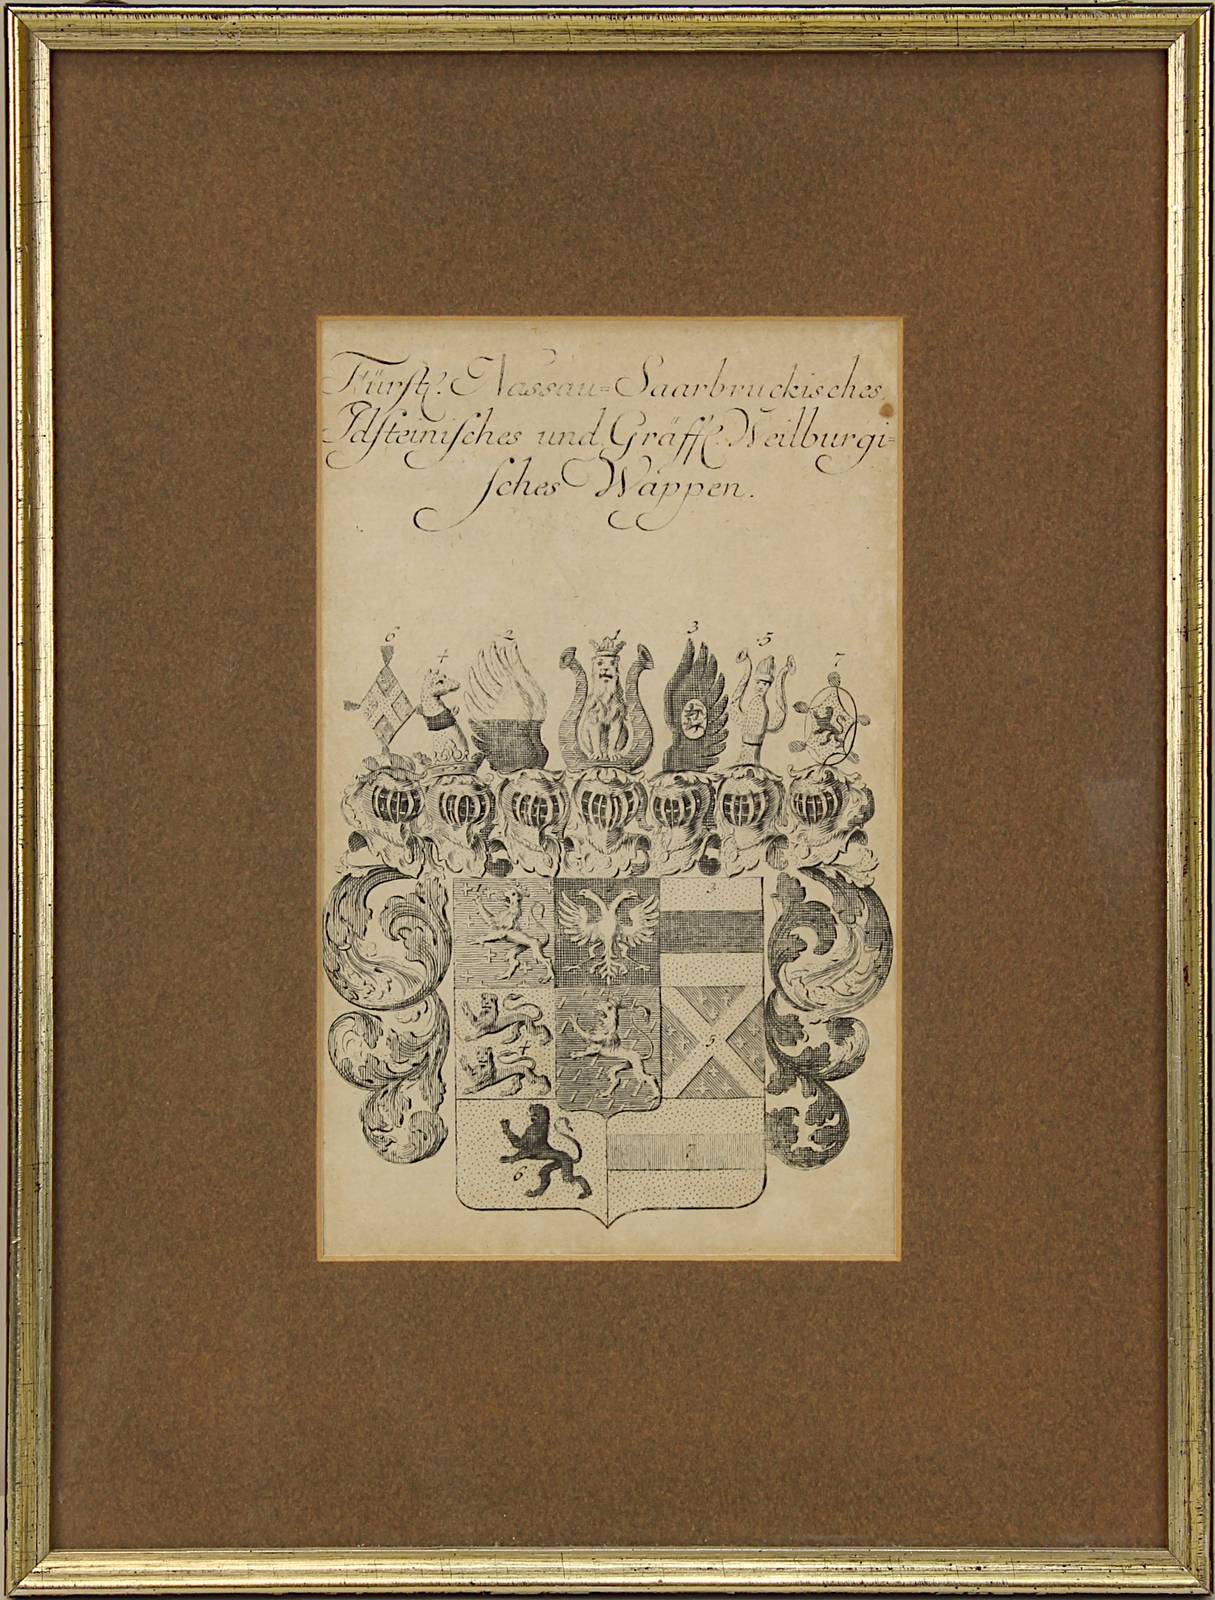 Fürstl. Nassau=Saarbruckisches,
Idsteinisches und Gräffl. Weilburgi=
sches Wappen.
6 4 2 1 3 5 7
3
5
6 7